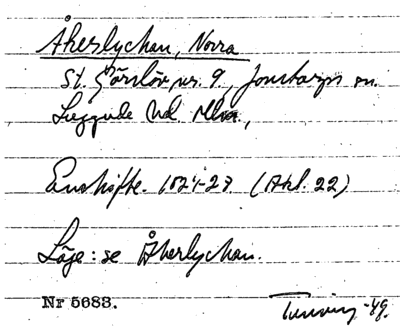 Åkerlyckan, Norra
St. Görslöv, nr. 9, Jonstorps sn.
Luggude hd. Mlm.,
Enskifte. 1824-27 (Akt. 22)
Läge: se Åkerlyckan.
Nr 5683.
-49.